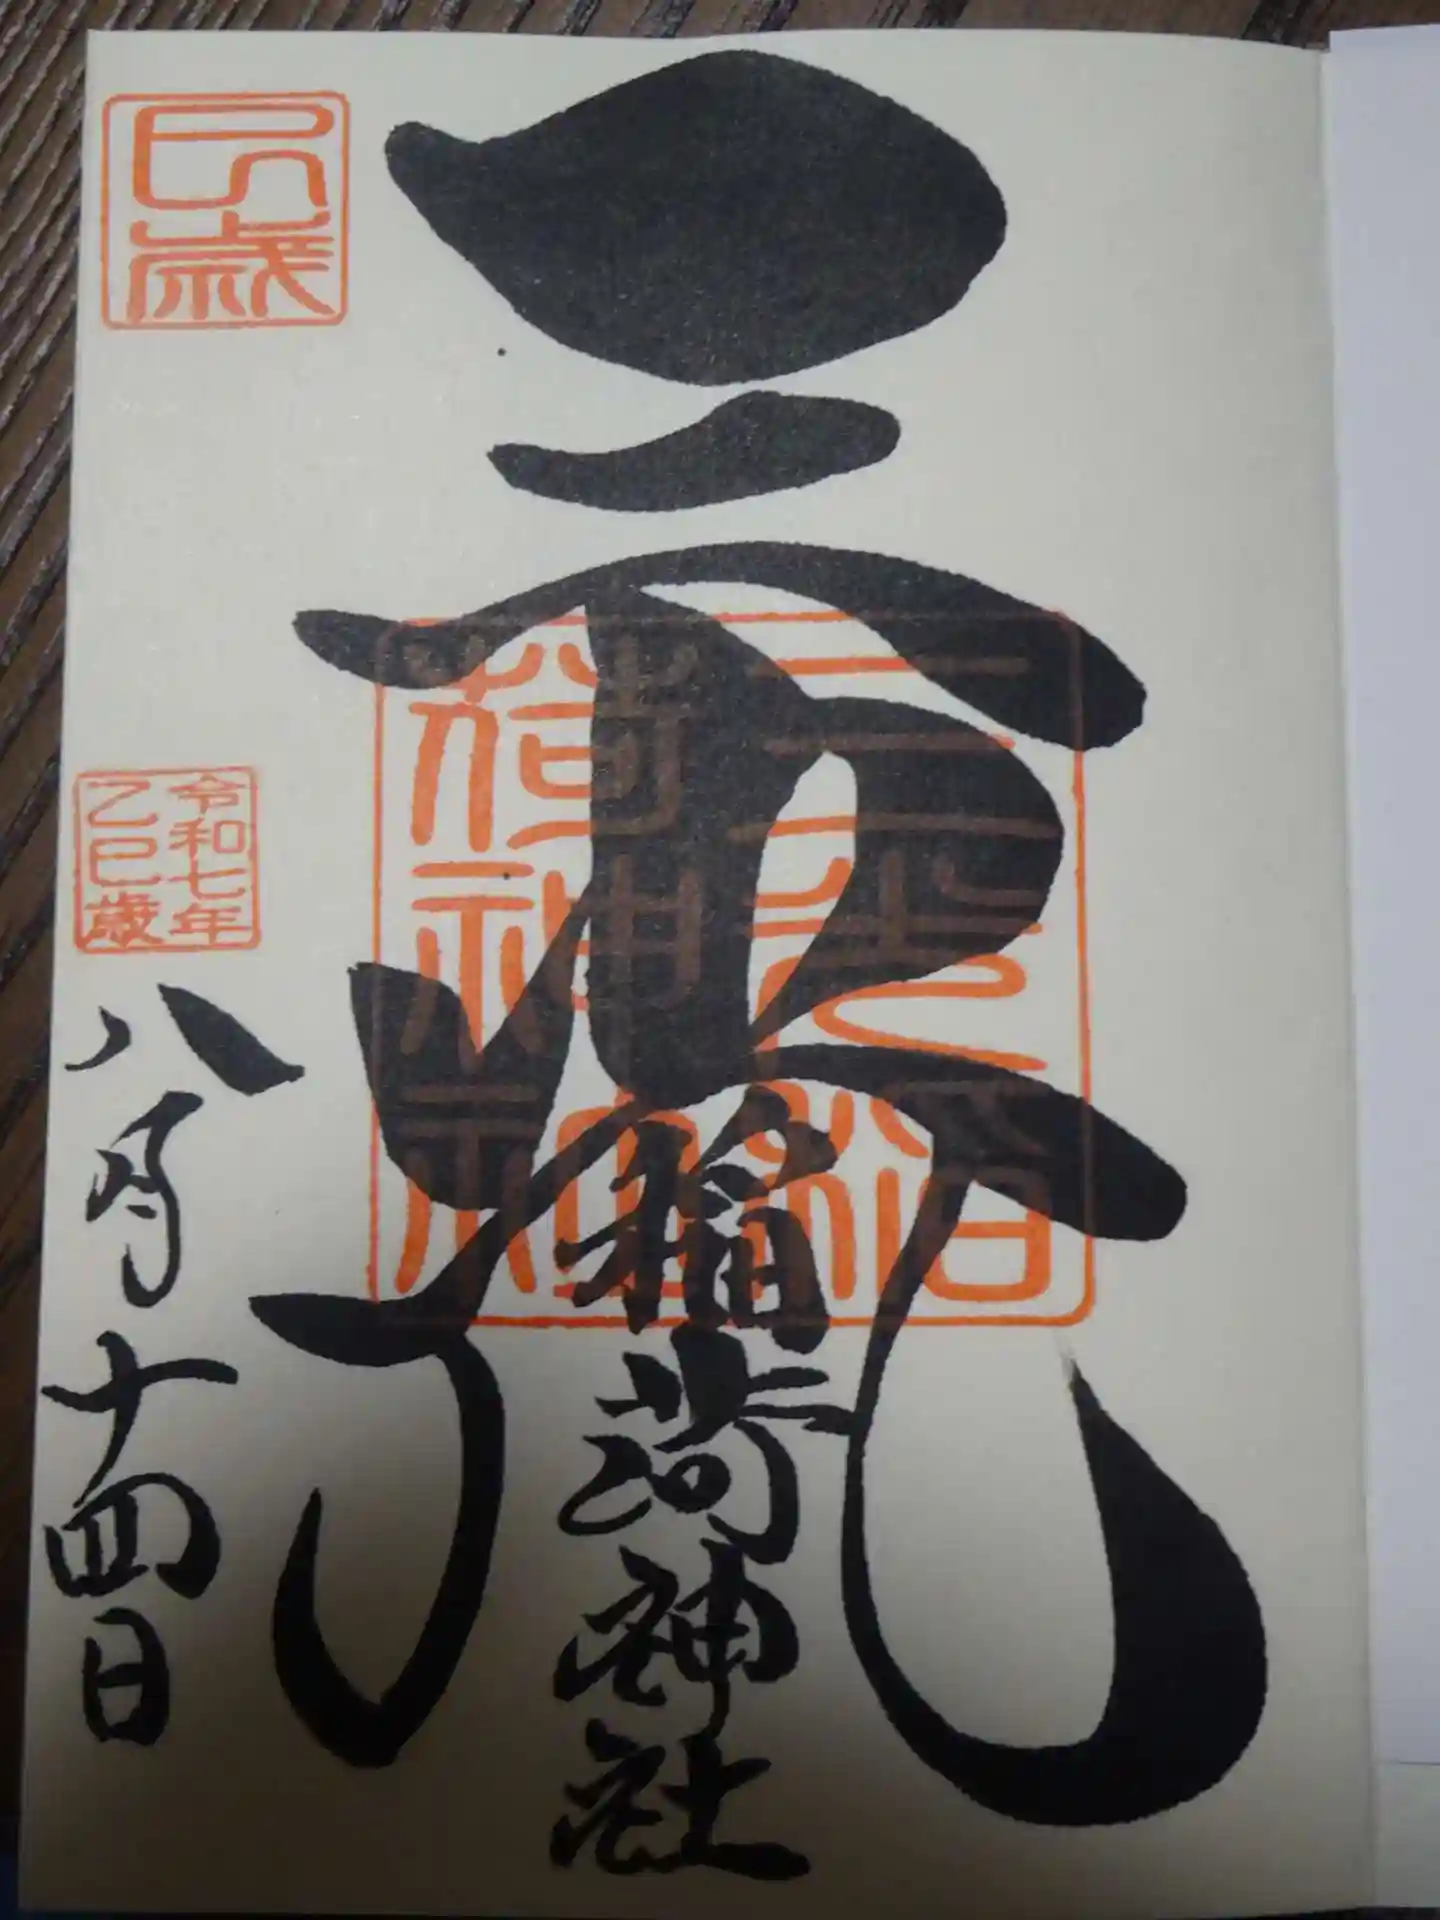 三光
稲荷神社
三光稲
荷神社
巳歳
令和七年
乙巳歳
八月十四日